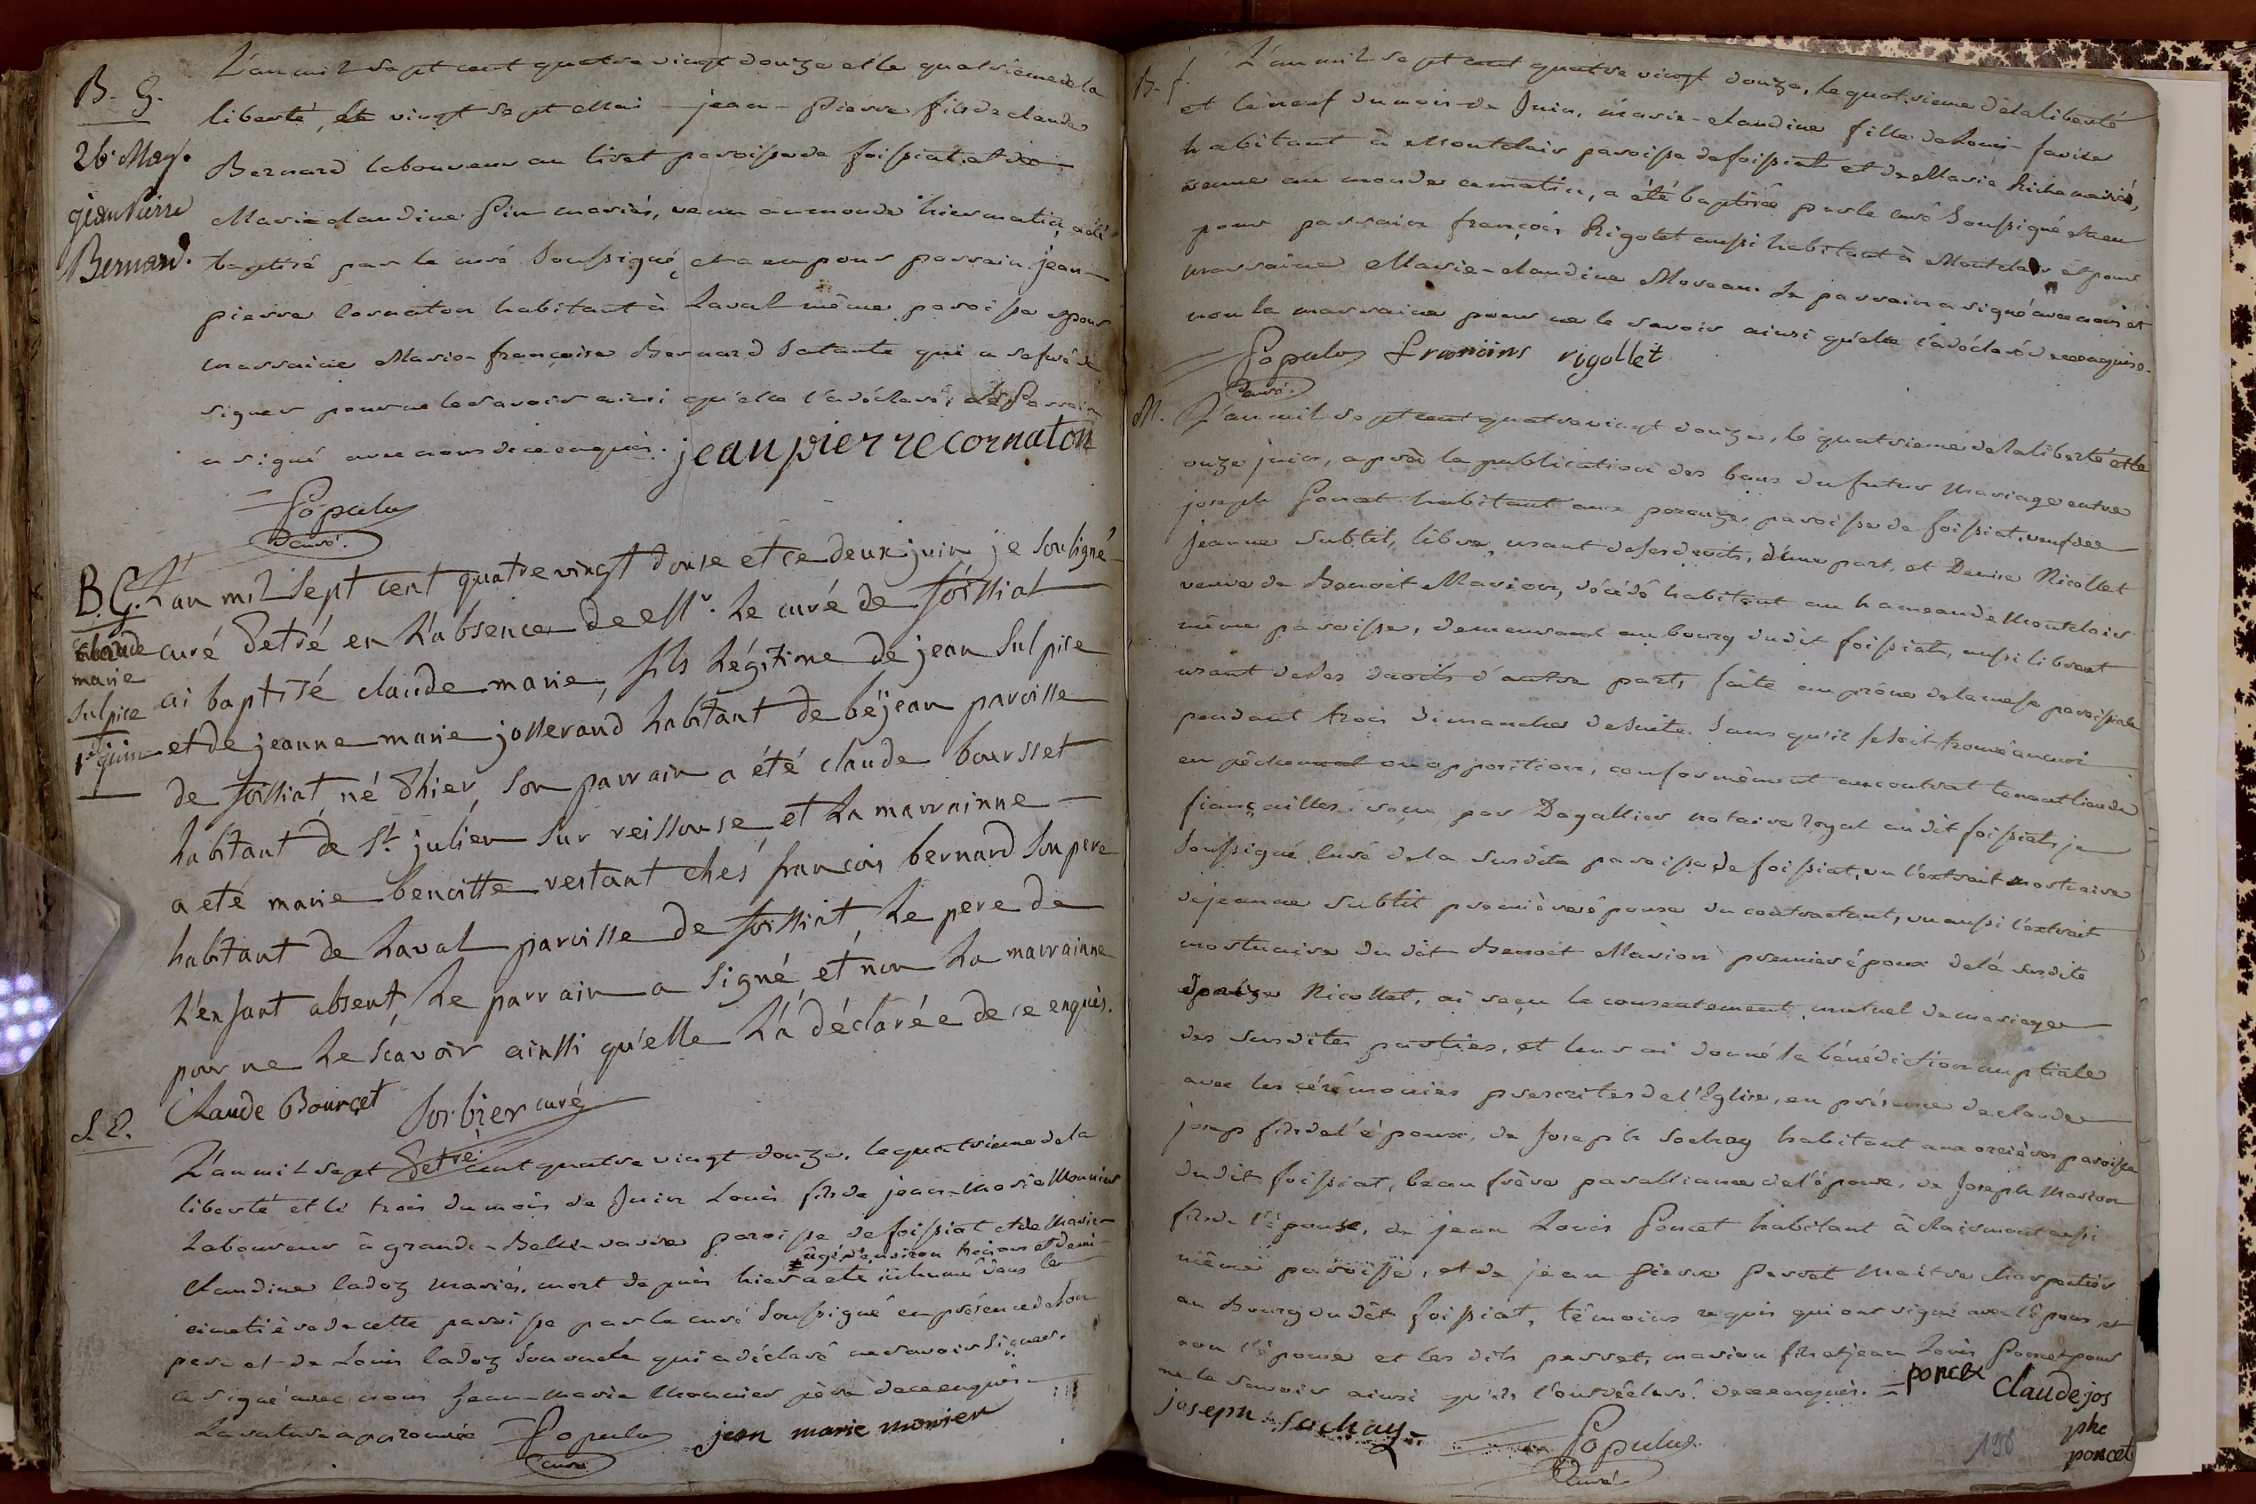 L'an mil sept cent quatre vingt douze et le quatrième de la
B. G.
liberté, le vingt sept Mai jean-Pierre fils de claude
26. May.
Bernard laboureur au tiret paroisse de foissiat et de
jean Pierre
Marie claudine Pin mariés, venu au monde hier matin, a été
Bernard.
baptisé par le curé soussigné, et a eu pour parrain jean
pierre cornaton habitant à Laval même paroisse et pour
marraine Marie françoise Bernard sa tante qui a refusé de
signer pour ne le savoir ainsi qu'elle l'a déclaré, le Parrain
a signé avec nous de ce enquis. jean pierre cornaton
Populus
curé.
B. G. L'an mil sept cent quatre vingt douse et ce deux juin je soussigné
claude
curé Detré en L'absence de Mr. Le curé de foissiat
marie
ai baptisé claude marie, fils Légitime de jean Sulpice
Sulpice
et de jeanne marie josserand habitant de béjean paroisse
1er juin
de foissiat, né D'hier, son parrain a été claude boursset
habitant de St. julien sur reissouse, et La marrainne
a eté marie benoitte restant chés françois bernard son pere
habitant de Laval paroisse de foissiat, Le pere de
L'enfant absent, Le parrain a signé, et non La marrainne
pour ne Le sçavoir ainssi qu'elle L'a déclarée de ce enquis.
Claude Bourcet Sorbier curé
Detré
S. E.
L'an mil sept cent quatre vingt douze, le quatrième de la
liberté et le trois du mois de Juin Louis fils de jean-Marie Monnier
Laboureur à grande-Belle-vavre paroisse de foissiat et de Marie
âgé d'environ trois ans et demi
claudine ladoz mariés, mort depuis hier a été inhumé dans le
cimetière de cette paroisse par le curé soussigné en présence de son
pere et de Louis ladoz son oncle qui a déclaré ne savoir signer.
a signé avec nous Jean-Marie Monnier père de ce enquis
La rature approuvée Populus jean marie monier
curé
B. f. L'an mil sept cent quatre vingt douze, le quatrieme de la liberté
et le neuf du mois de Juin, marie-claudine fille de Louis favier
habitant à Montclair paroisse de foissiat et de Marie Riche mariés,
venue au monde ce matin, a été baptisée par le curé soussigné et a eu
pour parrain françois Rigolet aussi habitant à Montclair et pour
marraine Marie-claudine Moreau. Le parrain a signé avec nous et
non la marraine pour ne le savoir ainsi qu'elle l'a déclaré de ce enquise.
Populus francoins rigollet
curé.
M. L'an mil sept cent quatre vingt douze, le quatrieme de la liberté et le
onze juin, après la publication des bans du futur mariage entre
joseph Poncet habitant aux poranges paroisse de foissiat, veuf de
jeanne Subtil, libre usant de ses droits, d'une part, et Denise Nicollet
veuve de Benoit Marion, décédé habitant au hameau de Montclair
même paroisse, demeurant au bourg dudit foissiat, aussi libre et
usant de ses droits d'autre part, faite au prône de la messe paroissiale
pendant trois dimanches de suite. Sans qu'il se soit trouvé aucun
empêchement ou opposition, conformément au contrat tenant lieu de
fiançailles reçu par Dagallier notaire royal audit foissiat, je
soussigné curé de la susdite paroisse de foissiat, vu l'extrait mortuaire
de jeanne Subtil première épouse du contractant, vu aussi l'extrait
mortuaire du dit Benoit Marion premier époux de la susdite
Denise Nicollet, ai reçu le consentement mutuel de mariage
des susdites parties, et leur ai donné la bénédiction nuptiale
avec les cérémonies prescrites de l'Eglise, en présence de claude
josep fils de l'époux, de Joseph Sochay habitant aux orcières paroisse
dudit foissiat, beau frère par alliance de l'épouse, de Joseph Marion
fils de l'épouse, de jean Louis Poncet habitant à clairmont aussi
même paroisse, et de jean pierre Perret Maitre charpentier
au Bourg dudit foissiat, témoins requis qui ont signé avec l'époux et
non l'épouse et les dits perret, marion fils et jean Louis Poncet pour
ne le savoir ainsi qu'ils l'ont déclaré de ce enquis. poncet Claude jos
joseph Sochay phe
Populus poncet
curé
198